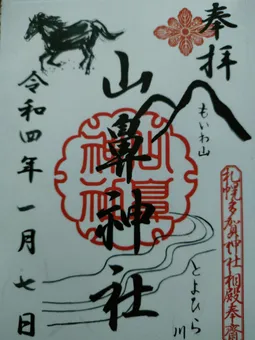 奉拝
もいわ山
札幌多賀神社相殿奉斎
山鼻神社
とよひら
川
令和四年一月七日